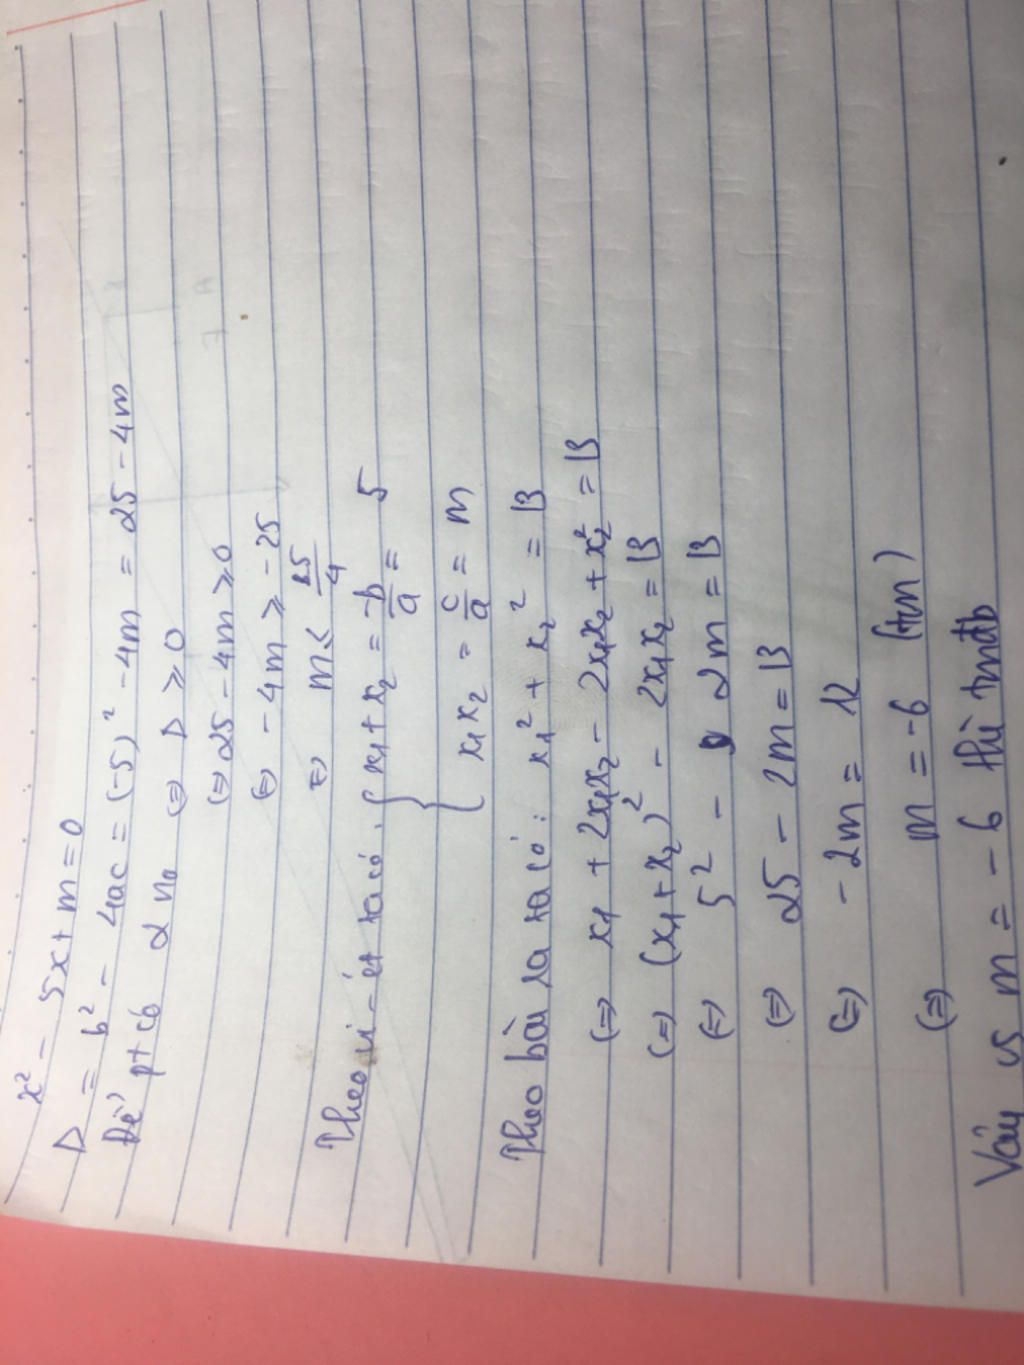 x² - 5x + m = 0
Δ = b² - 4ac = (-5)² - 4m = 25 - 4m
Để pt có 2 n₀ (=) Δ ≥ 0
(=) 25 - 4m ≥ 0
(=) - 4m ≥ -25
(=) m ≤ 25/4
Theo vi-ét ta có: { x₁ + x₂ = -b/a = 5
x₁x₂ = c/a = m
Theo bài ra ta có: x₁² + x₂² = 13
(=) x₁ + 2x₁x₂ - 2x₁x₂ + x₂² = 13
(=) (x₁ + x₂)² - 2x₁x₂ = 13
(=) 5² - 2m = 13
(=) 25 - 2m = 13
(=) - 2m = 12
(=) m = -6 (tm)
Vậy vs m = - 6 thì tmđb